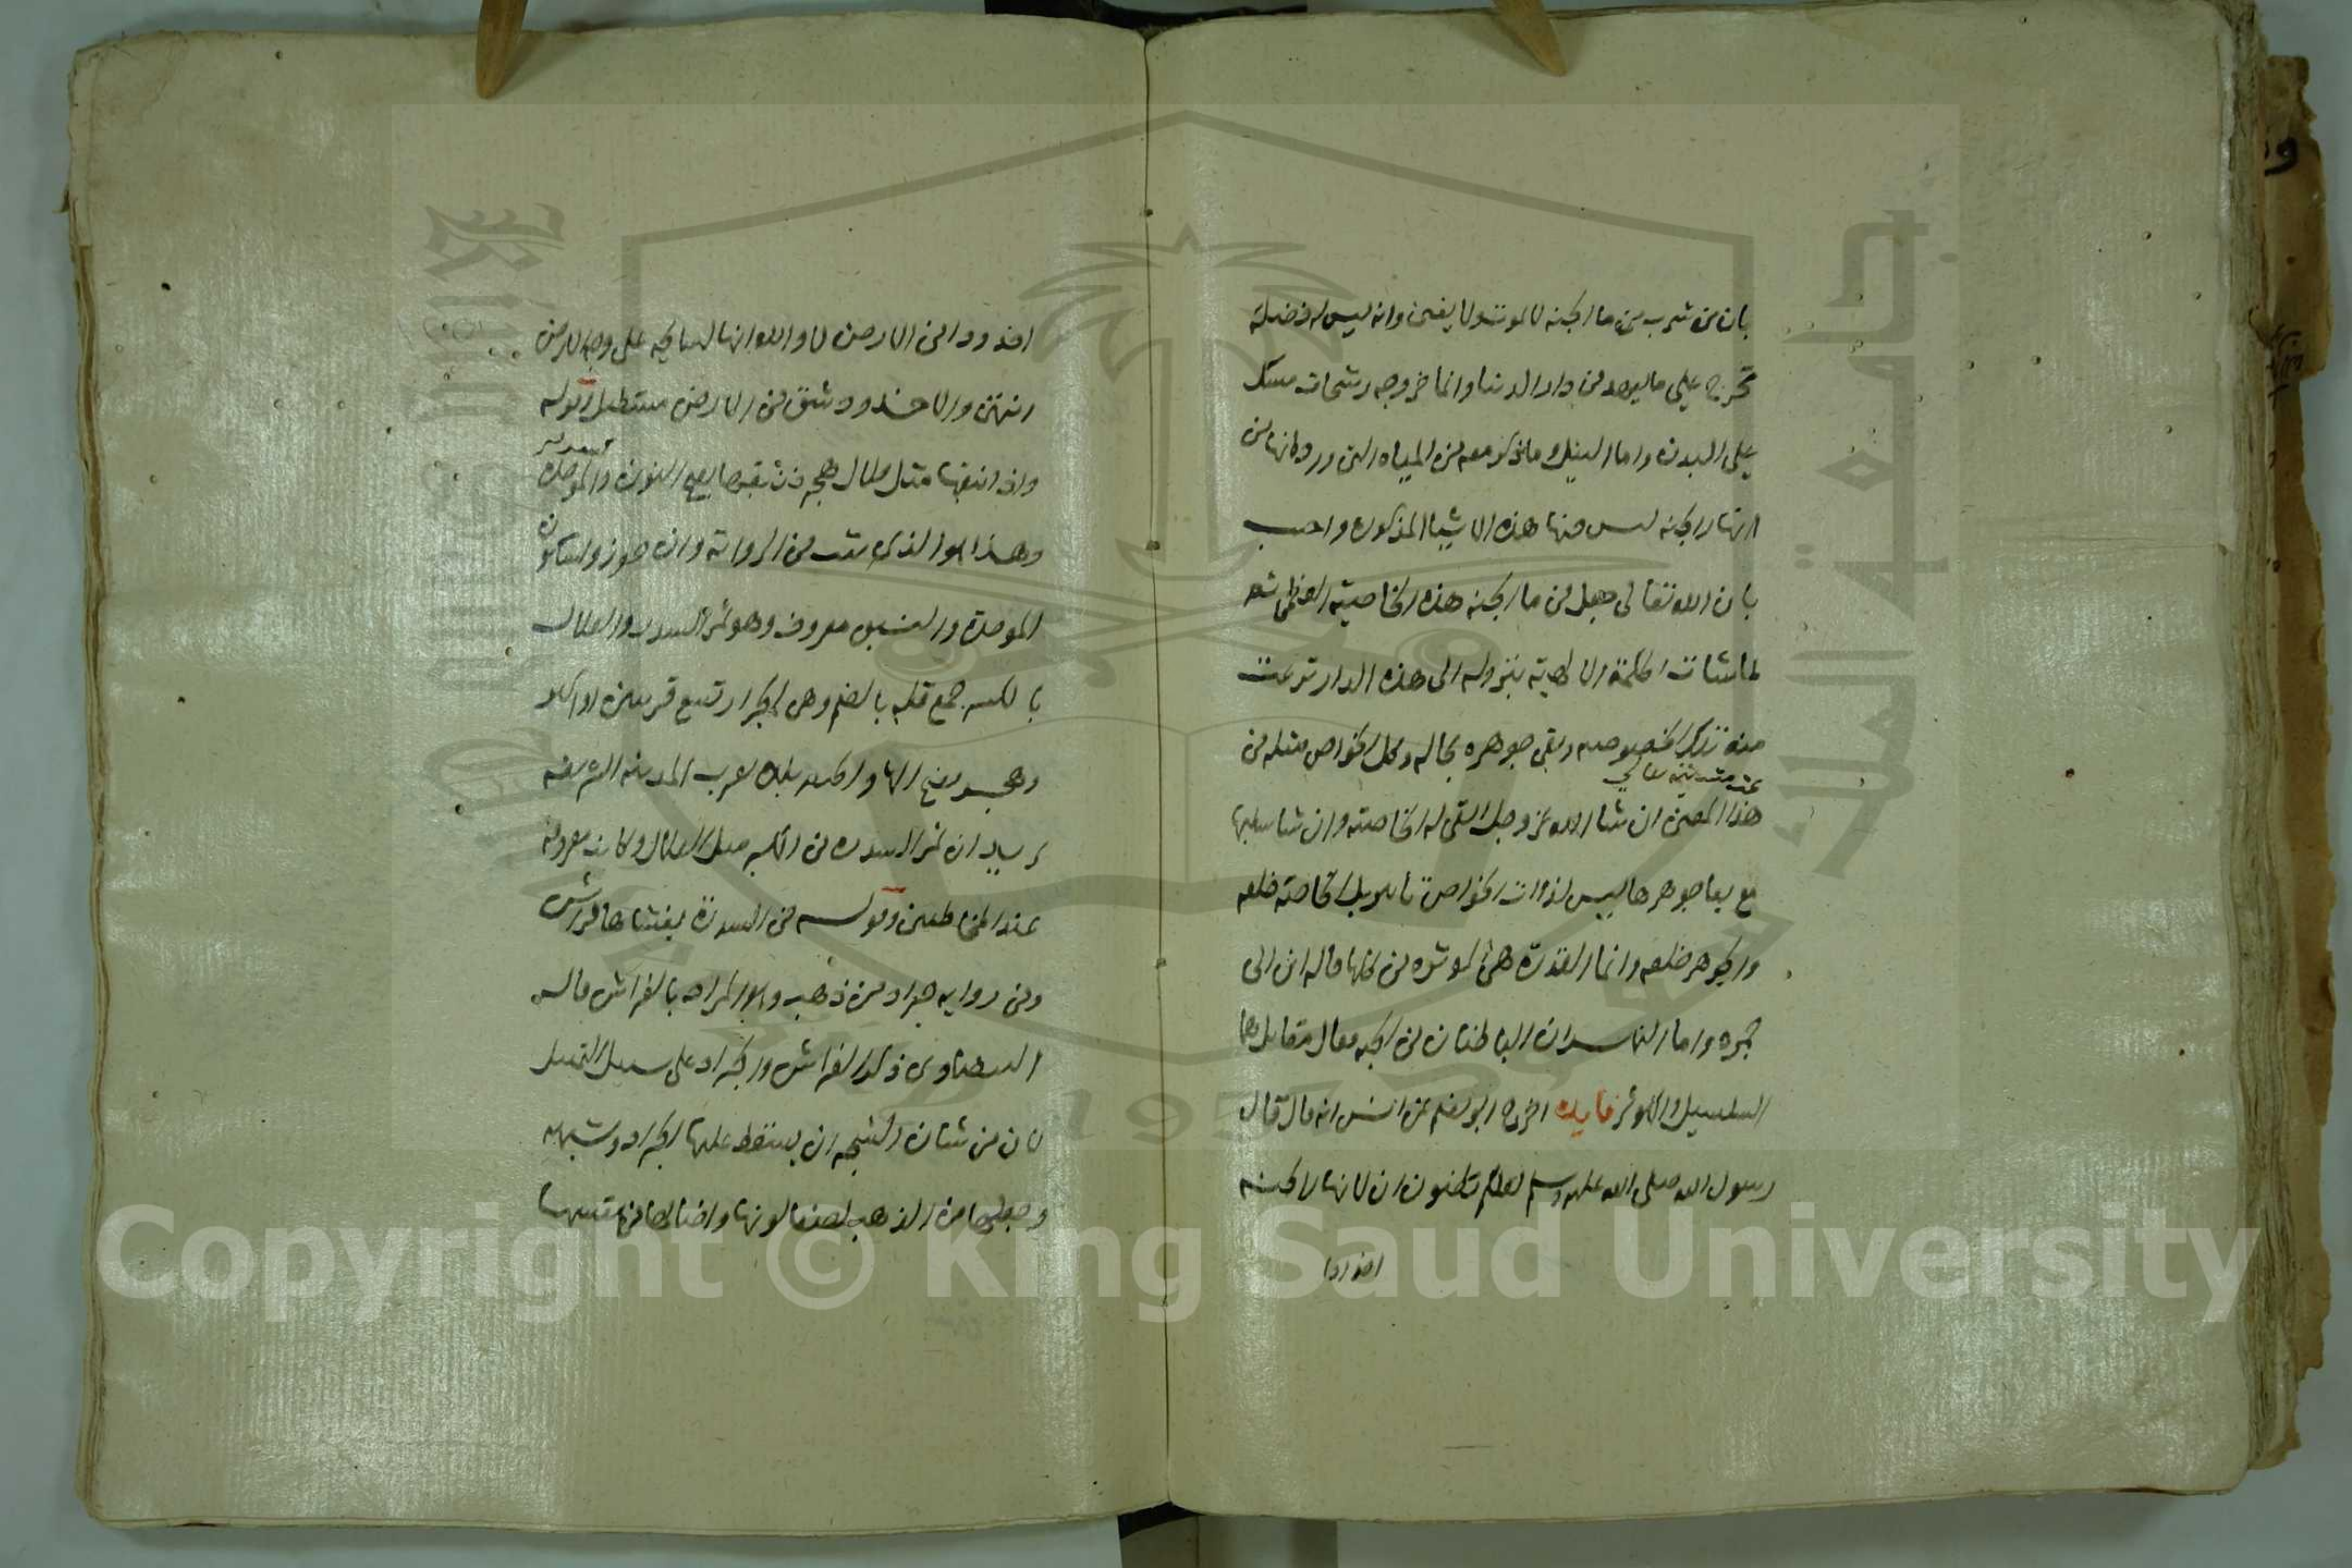 بان من شرب من ماء الجنة لا يموت ولا يفنى وانه ليس له فضلة
تخرج على ما يعهد في دار الدنيا وانما خروجه رشحات مسك
على البدن واما النيل وما ذكر معه من المياه التي ورد انها من
انهار الجنة ليس فيها هذه الاشيا المذكورة واجيب
بان الله تعالى جعل في ماء الجنة هذه الخاصية العظمى ثم
لما شات الحكمة الالهية بنزوله الى هذه الدار نزعت
منه تلك الخصوصية وبقي جوهره بحاله وكل الخواص مثله في
عند مشيئته تعالى
هذا المعنى ان شا الله عز وجل ابقى له الخاصية وان شا سلبها
مع بقا جوهرها ليس لذوات الخواص تاثير بل الخاصة خلقه
والجوهر خلقه وانما القدرة هي الموثرة في كلها قاله ابن ابي
جمرة واما النهران الباطنان في الجنة فقال مقاتل هما
السلسبيل والكوثر فايدة اخرج ابو نعيم عن انس انه قال قال
رسول الله صلى الله عليه وسلم لعلكم تظنون ان لانهار الجنة
اخدودا
اخدود في الارض لا والله انها لسايحة على وجه الارض
انتهى والاخدود شق في الارض مستطيل قوله
واذا نبقها مثل قلال هجر فنبقها بفتح النون والموحدة
وهذا هو الذي ثبت في الرواية وان جوز سكون
الموحدة والنبق معروف وهو ثمر السدر والقلال
بالكسر جمع قلة بالضم وهي الجرار تسع قربتين او اكثر
وهجر بفتح الها والجيم بلدة بقرب المدينة الشريفة
يريد ان ثمر السدرة في الكبر مثل القلال وكانت معروفة
عند المخاطبين وقوله في السدرة يغشاها فراش
وفي رواية جراد من ذهب وهو المراد بالفراش قال
البيضاوي ذكر الفراش والجراد على سبيل التمثيل
لان من شان الشجر ان يسقط عليها الجراد وشبهه
وجعلها من الذهب لصفا لونها واضائها في نفسها
Copyright © King Saud University
1957